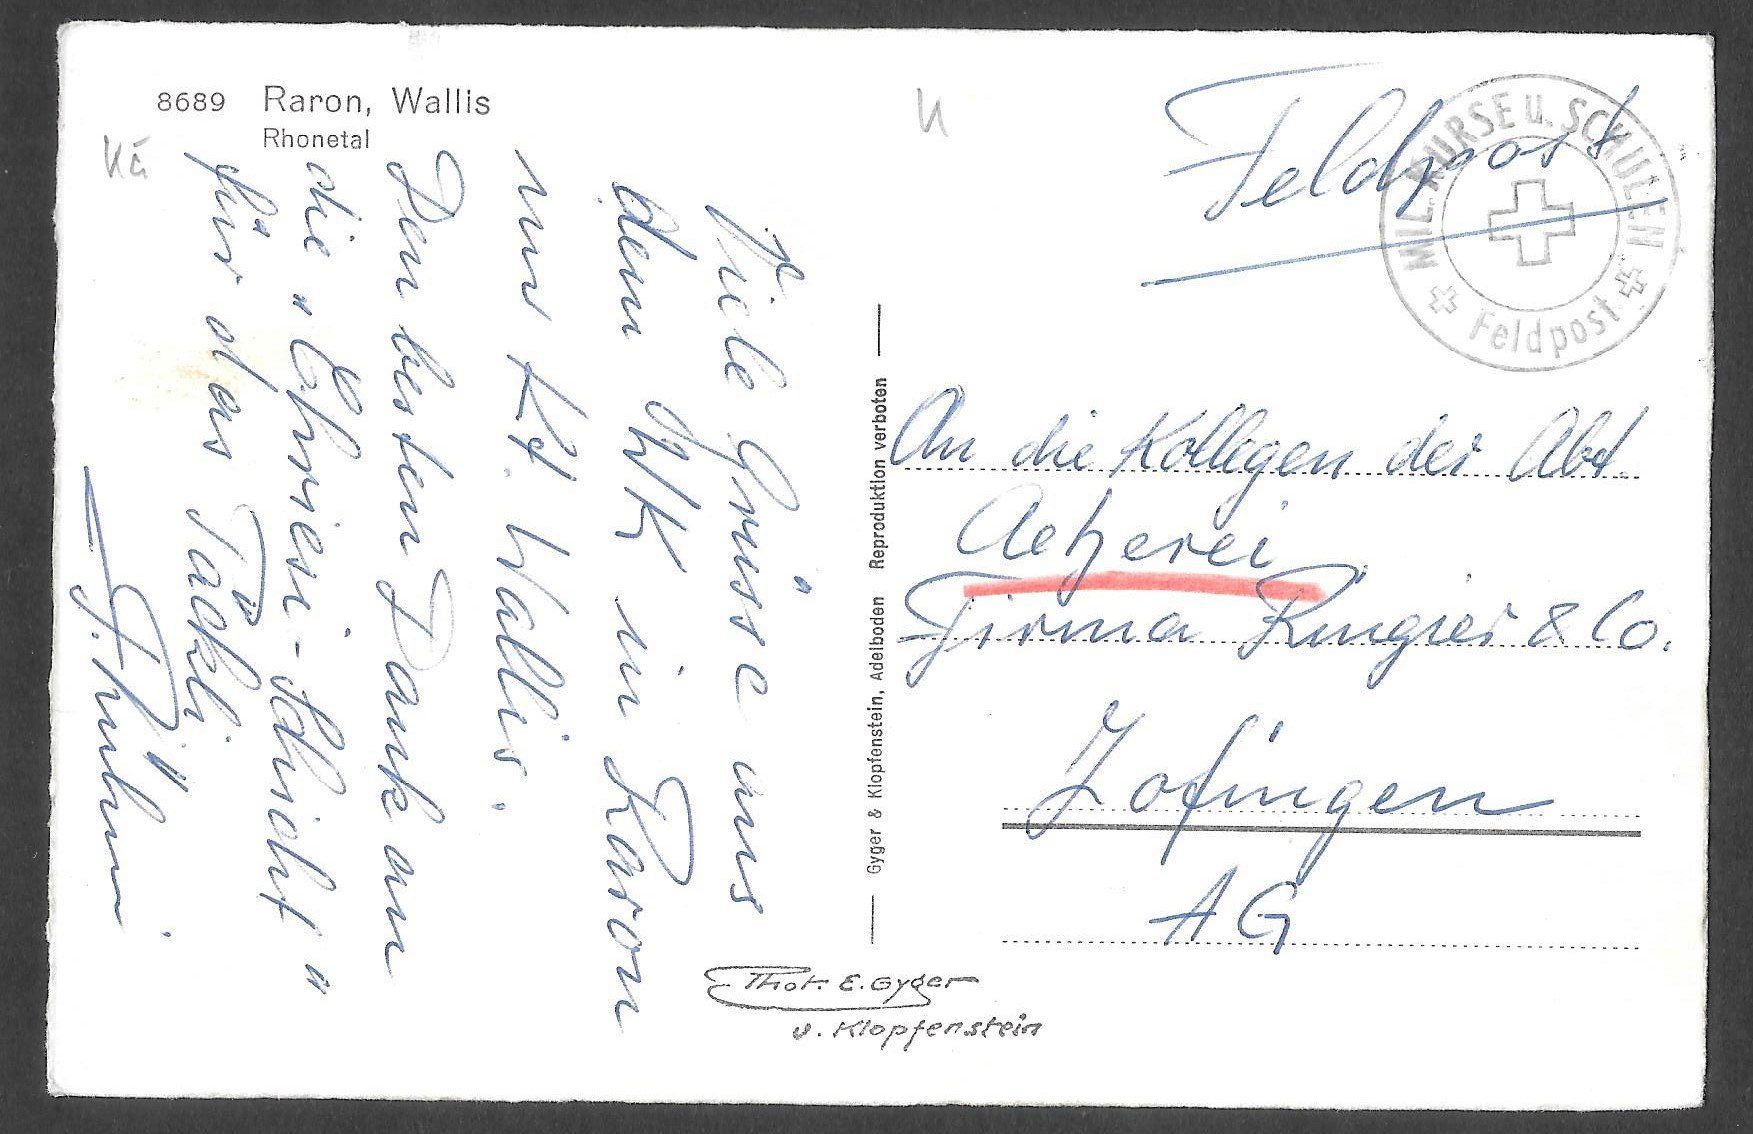 8689 Raron, Wallis
Rhonetal
Viele Grüsse aus
dem WK in Raron
im Kt. Wallis.
Den besten Dank an
die "Chriesi-Schicht"
für das Päckli
Gyger & Klopfenstein, Adelboden Reproduktion verboten
Feldpost
MIL. KURSE U. SCHULEN
Feldpost
An die Kollegen der Abt.
Aetzerei
Firma Ringier & Co.
Zofingen
AG
Phot. E. Gyger
u. Klopfenstein